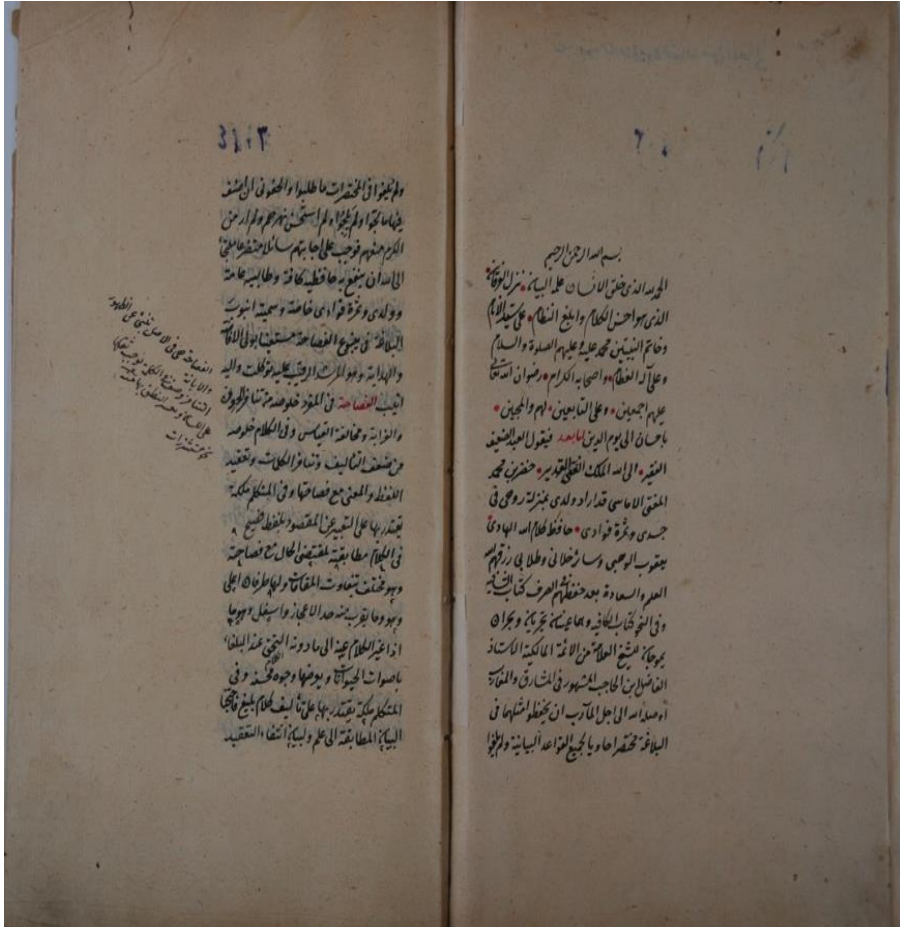 بسم الله الرحمن الرحيم
الحمد لله الذي خلق الانسان علمه البيان نزل الفرقان
الذي هو احسن الكلام وابلغ النظام على سيد الانام
وخاتم النبيين محمد عليه وعليهم الصلوة والسلام
وعلى آله العظام واصحابه الكرام رضوان الله تعالى
عليهم اجمعين وعلى التابعين لهم والمجيبين
باحسان الى يوم الدين اما بعد فيقول العبد الضعيف
الفقير الى الله الملك القدير خضر بن محمد
المفتي الاماسي قد اراد ولدي بمنزلة روحي في
جسدي وثمرة فوادي حافظ كلام الله الهادي
يعقوب الوهبي وسائر خلاني وطلابي رزقهم الله
العلم والسعادة بعد حفظهم في الصرف كتاب الشافيه
وفي النحو كتاب الكافيه وهما عينان تجريان وبحران
يموجان للشيخ العلامة من الائمة المالكية الاستاذ
الفاضل ابن الحاجب المشهور في المشارق والمغارب
اوصله الله الى اجل المآرب ان يحفظوا مثلهما في
البلاغة مختصرا حاويا لجميع القواعد البيانية ولم يلغوا
ولم يلغوا في المختصرات ما طلبوا والحفوني ان اصنف
فيها ما بحثوا ولم استحسن نهرهم ولم ار من
الكرم منعهم فوجب علي اجابتهم سائلا متضرعا ملتجأ
الى الله ان ينفع به حافظيه كافة وطالبيه عامة
وولدي وثمرة فوادي خاصة وسميته انبوب
البلاغة في ينبوع الفصاحة مستعينا بولي الافاضة
والهداية وهو المرتقب عليه توكلت واليه
انيب الفصاحة في المفرد خلوصه من تنافر الحروف
والغرابة ومخالفة القياس وفي الكلام خلوصه
من ضعف التأليف وتنافر الكلمات وتعقيد
اللفظ والمعنى مع فصاحتها وفي المتكلم ملكة
يقتدر بها على التعبير عن المقصود بلفظ فصيح
في الكلام مطابقته لمقتضى الحال مع فصاحته
وهو مختلف بتفاوت المقامات ولها طرفان اعلى
وهو وما يقرب منه حد الاعجاز واسفل وهو ما
اذا غير الكلام عنه الى ما دونه التحق عند البلغاء
باصوات الحيوانات ويعرضها وجوه محسنة وفي
المتكلم ملكة يقتدر بها على تأليف كلام بليغ
البيان المطابقة الى علم ولبيان انتفاء التعقيد
الفصاحة هي في الاصل تنبئ عن الظهور
والابانة
التنافر وصف في الكلمة يوجب ثقلها
على اللسان وعسر النطق بها
نحو مستشزرات